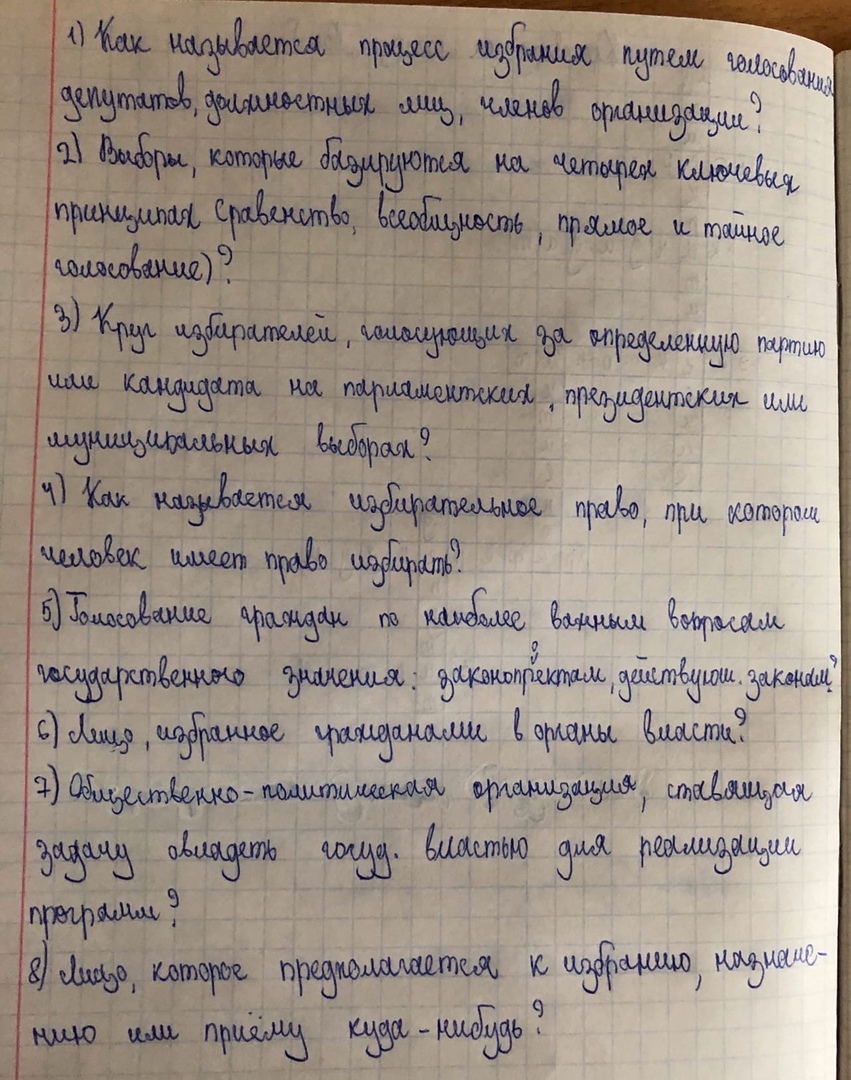 1) Как называется процесс избрания путем голосования
депутатов, должностных лиц, членов организации?
2) Выборы, которые базируются на четырех ключевых
принципах (равенство, всеобщность, прямое и тайное
голосование)?
3) Круг избирателей, голосующих за определенную партию
или кандидата на парламентских, президентских или
муниципальных выборах?
4) Как называется избирательное право, при котором
человек имеет право избирать?
5) Голосование граждан по наиболее важным вопросам
государственного значения: законопроектам, действующ. законам?
6) Лицо, избранное гражданами в органы власти?
7) Общественно-политическая организация, ставящая
задачу овладеть госуд. властью для реализации
программ?
8) Лицо, которое предполагается к избранию, назначе-
нию или приёму куда-нибудь?